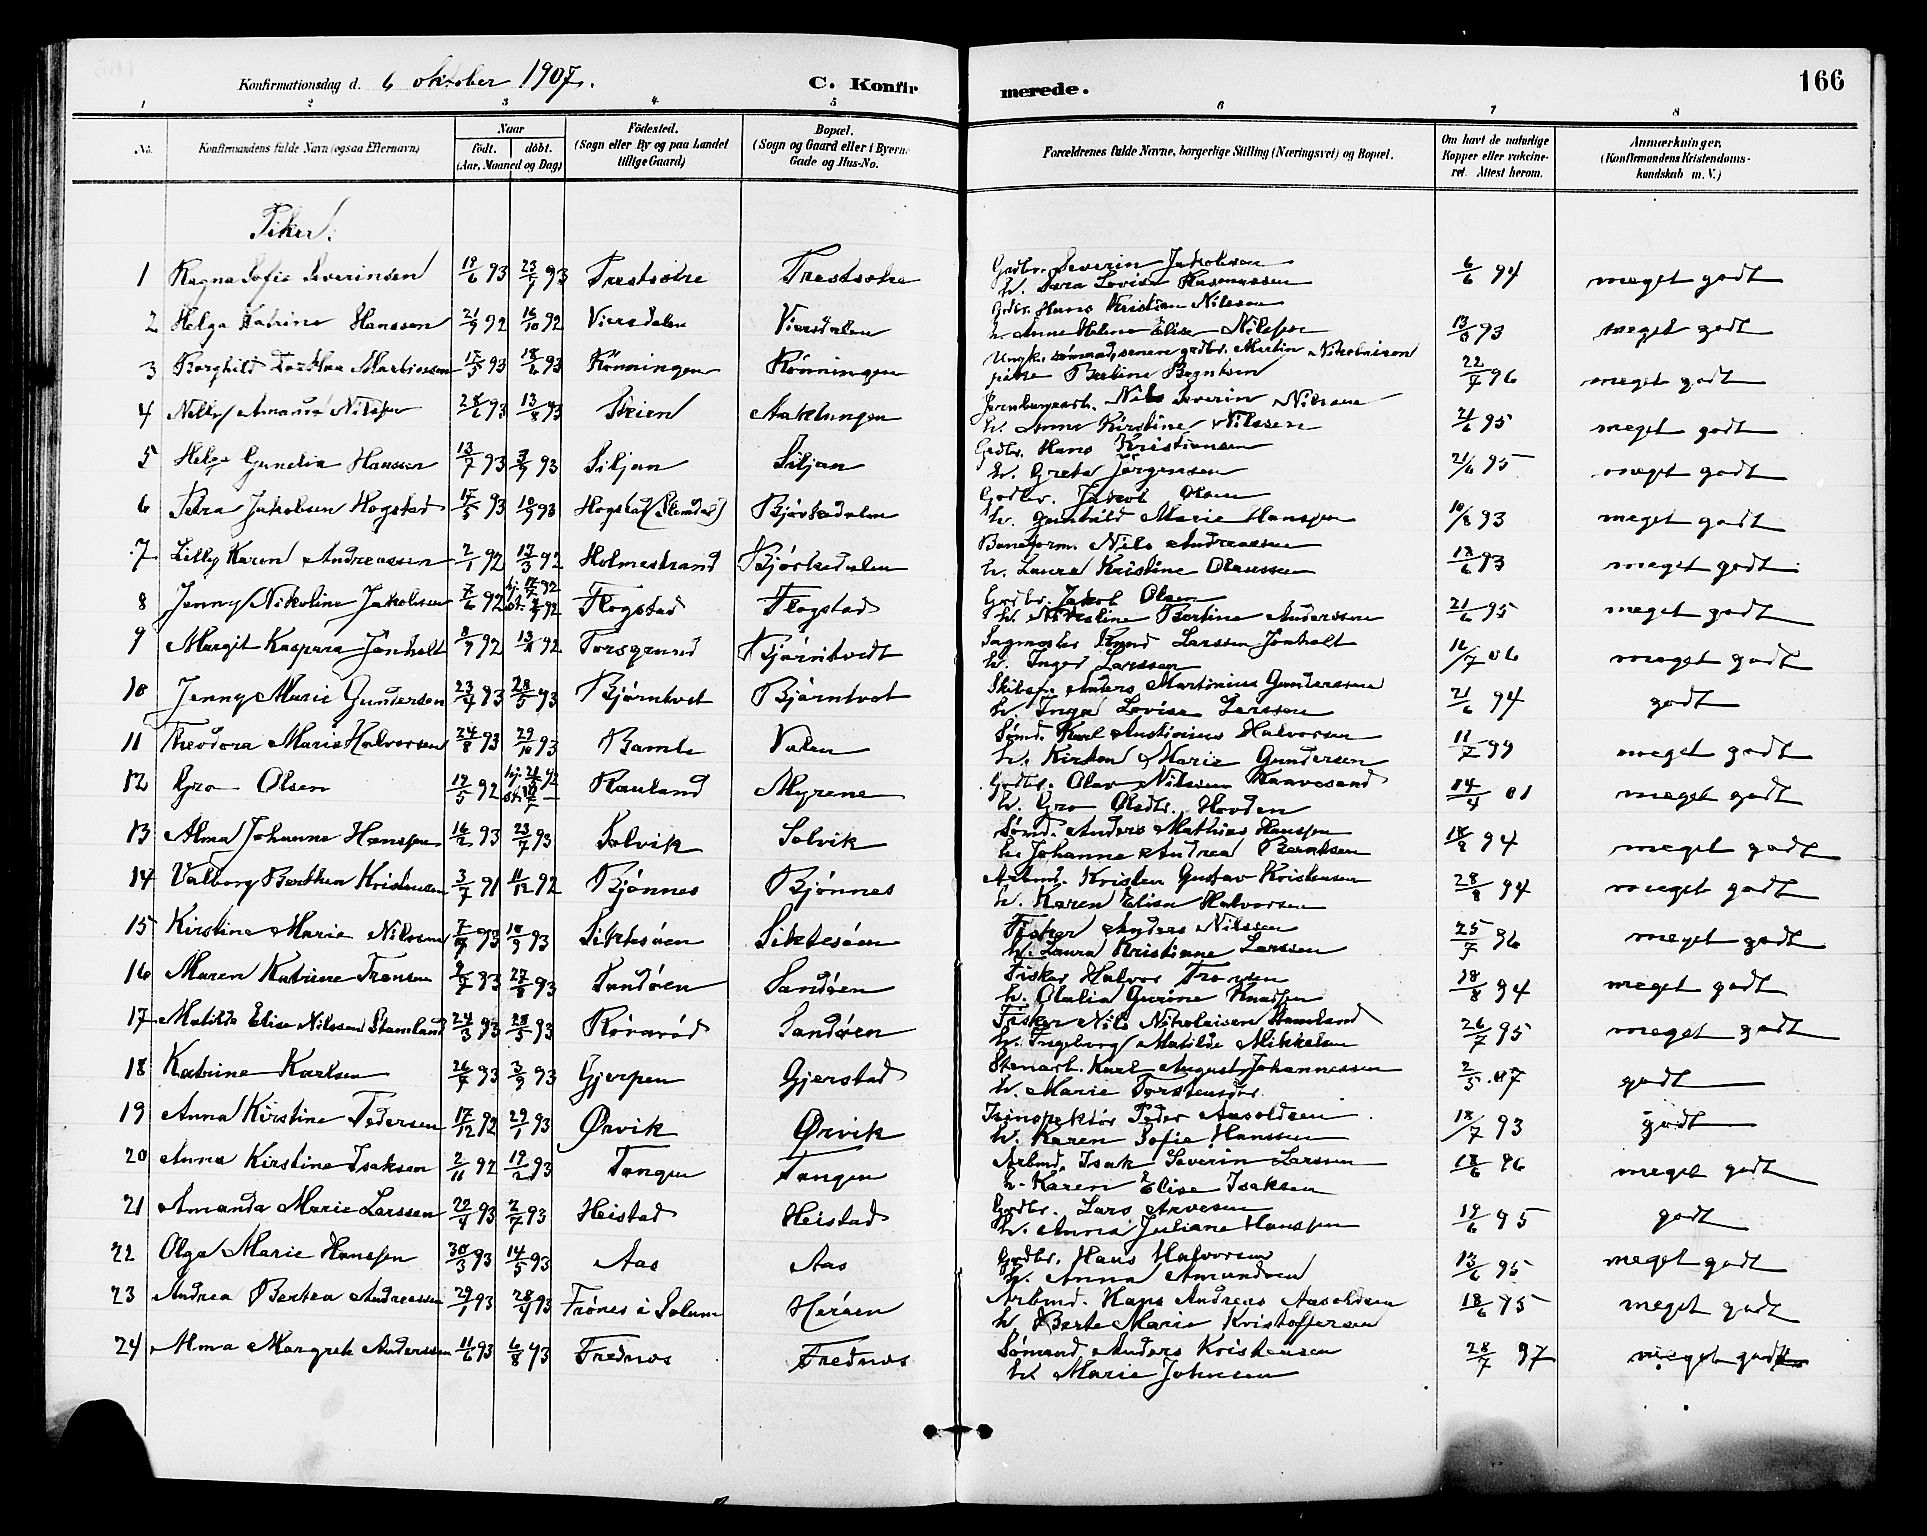 166
Konfirmationsdag d. 6 oktober 1907. C. Konfirmerede.
1 2 3 4 5 6 7 8
No. Konfirmandens fulde Navn (ogsaa Efternavn) Naar födt. döbt. (Aar, Maaned og Dag) Födested. (Sogn eller By og paa Landet tillige Gaard) Bopæl. (Sogn og Gaard eller i Byerne Gade og Hus-No. Forældrenes fulde Navne, borgerlige Stilling (Næringsvei) og Bopæl. Om havt de naturlige Kopper eller vaksineret. Attest herom. Anmærkninger. (Konfirmandens Kristendomskundskab m. V.)
Piker.
1 Ragna Sofie Severinsen 19/6 93 23/7 93 Grdbr. Severin Jakobsen
h. Lovise Rasmussen 6/6 94 meget godt
2 Helga Katrine Hanssen 21/9 92 16/10 92 Viersdalen Viersdalen Grdbr. Hans Kristian Nilssen
h. Anne Helene Elise Nilssen 13/3 93 meget godt
3 Borghild Martinsen 17/3 93 18/6 93 Rönningen Rönningen Ungk. sömand, senere grdbr. Martin Nikolaisen
pike Bertine Bentsen 22/7 96 meget godt
4 Nelly Amanda Nilssen 28/6 93 13/8 93 Skien Jernbanearb. Nils Severin Nilssen
h. Anne Kirstine Nilssen 21/6 95 meget godt
5 Helga Gunelia Hanssen 13/7 93 3/9 93 Siljan Siljan Grdbr. Hans Kristiansen
h. Greta Jörgensen 21/6 95 meget godt
6 Petra Jakobsen Hogstad 17/5 93 10/9 93 Hogstad (Slemdal) Björkedalen Grdbr. Jakob Olsen
h. Gunhild Marie Hanssen 10/8 93 meget godt
7 Lilly Karen Andreassen 2/1 92 13/3 92 Holmestrand Björkedalen Baneform. Nils Andreassen
h. Laura Kristine Olaussen 18/6 93 meget godt
8 Jenny Nikoline Jakobsen 7/6 92 Flogstad Flogstad Grdbr. Jakob Olsen
h. Nikoline Bertine Anderssen 21/6 95 meget godt
9 Margit Kaspara Jönholt 8/9 92 13/11 92 Porsgrund Björntvedt Sagmester Knud Larssen Jönholt
h. Inger Larssen 12/7 06 meget godt
10 Jenny Marie Gundersen 23/4 93 28/5 93 Björntvet Björntvet Anders Martinius Gundersen
h. Inga Lovise Larssen 21/6 94 godt
11 Theodora Marie Halvorsen 24/8 93 29/10 93 Bamle Valen Sömd. Karl Halvorsen
h. Kirsten Marie Gundersen 11/7 99 meget godt
12 Gro Olsen 12/5 92 Rauland Myrene Grdbr. Olav Nilssen
h. Gro Olsdtr. Hovden 14/4 01 meget godt
13 Alma Johanne Hanssen 16/2 93 23/7 93 Solvik Solvik Sömd. Anders Mathias Hanssen
h. Johanne Andrea Berntsen 18/8 94 meget godt
14 Valborg Berthea Kristensen 3/7 91 11/12 92 Björnnes Björnnes Arbmd. Kristen Gustav Kristensen
h. Karen Elise Halvorsen 28/8 94 meget godt
15 Kirstine Marie Nilssen 93 10/9 93 Siktesöen Siktesöen Fisker Anders Nilssen
h. Laura Kristiane Larssen 25/7 96 meget godt
16 Maren Katrine 93 27/8 93 Sandöen Sandöen Fisker Halvor
h. Olalia Gurine Knudsen 18/8 94 meget godt
17 Matilde Elise Nilssen Stamland 24/3 93 28/5 93 Röraröd Sandöen Fisker Nils Nikolaisen Stamland
h. Ingeborg Matilde Mikkelsen 26/7 95 meget godt
18 Katrine Karlsen 26/7 93 3/9 93 Gjerpen Gjerstad Stenarb. Karl August Johannessen
h. Marie Torstensdtr. 2/5 07 godt
19 Anna Kirstine Pedersen 17/12 92 29/1 93 Ørvik Ørvik Peder Aasoldsen
h. Karen Sofie Hanssen 18/7 93 godt
20 Anna Kirstine Isaksen 2/11 92 19/2 93 Tangen Tangen Arbmd. Isak Severin Larssen
h. Karen Elise Isaksen 18/6 96 meget godt
21 Amanda Marie Larssen 22/4 93 2/7 93 Heistad Heistad Grdbr. Lars Arvesen
h. Anna Juliane Hanssen 19/6 95 godt
22 Olga Marie Hanssen 30/3 93 14/5 93 Aas Aas Grdbr. Hans Halvorsen
h. Anna Amundsen 13/6 95 meget godt
23 Andrea Bertea Andreassen 29/1 93 28/4 93 Frönes i Solum Heröen Arbmd. Hans Andreas Aasoldsen
h. Berte Marie Kristoffersen 18/6 95 meget godt
24 Alma Margrete Anderssen 11/6 93 6/8 93 Frednes Frednes Sömand Anders Kristensen
h. Marie Johnsen 28/7 97 meget godt